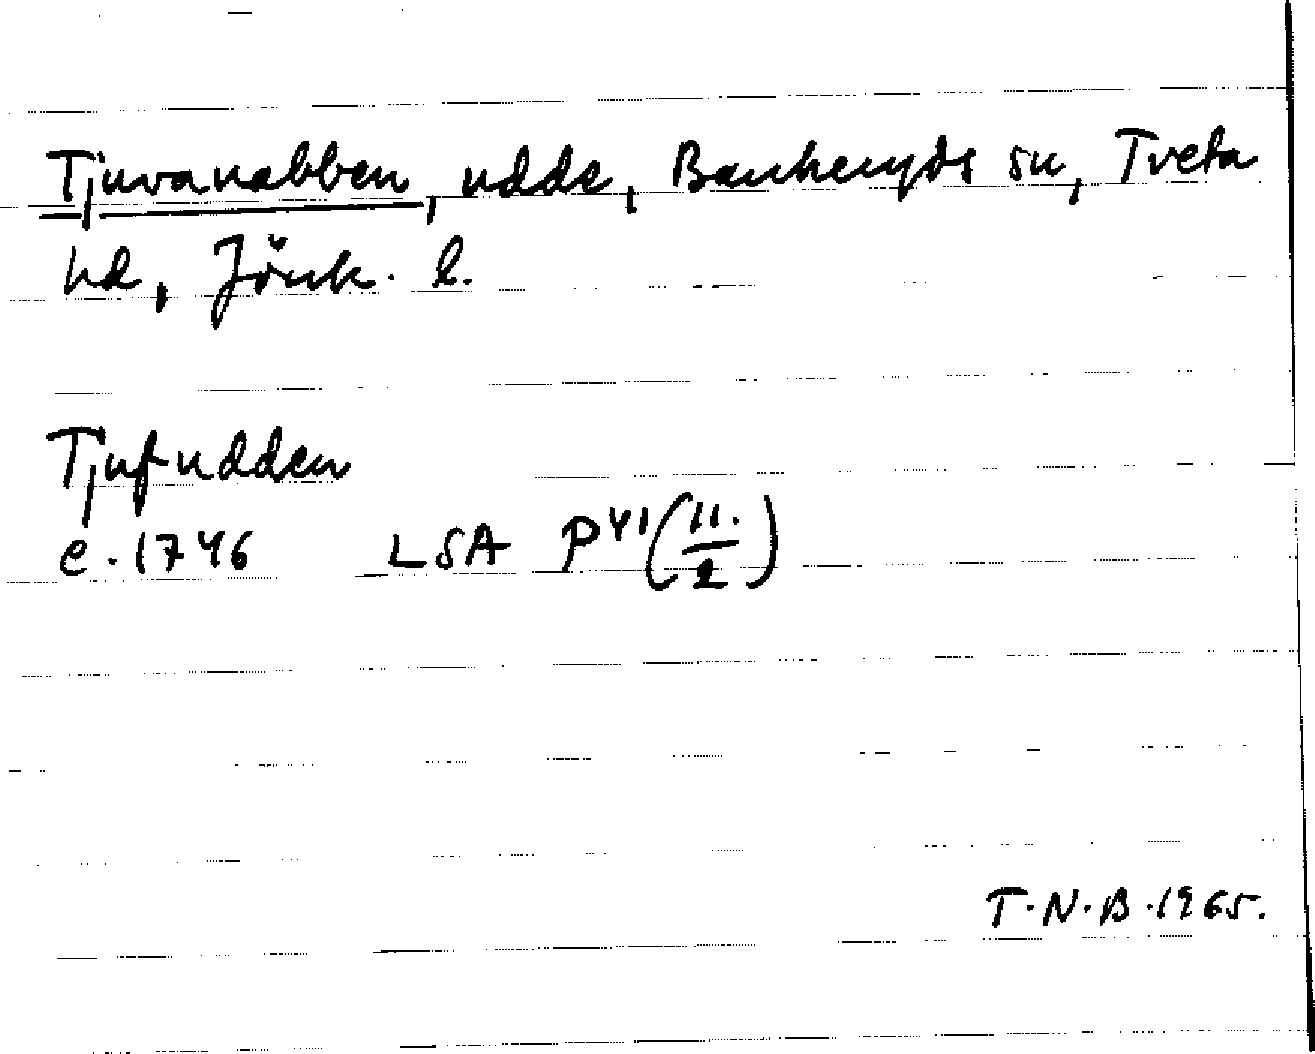 Tjuvanabben, udde, Bankeryds sn, Tveta
hd, Jönk. l.
Tjufudden
e. 1746 LSA P41(11./2)
T.N.B. 1965.